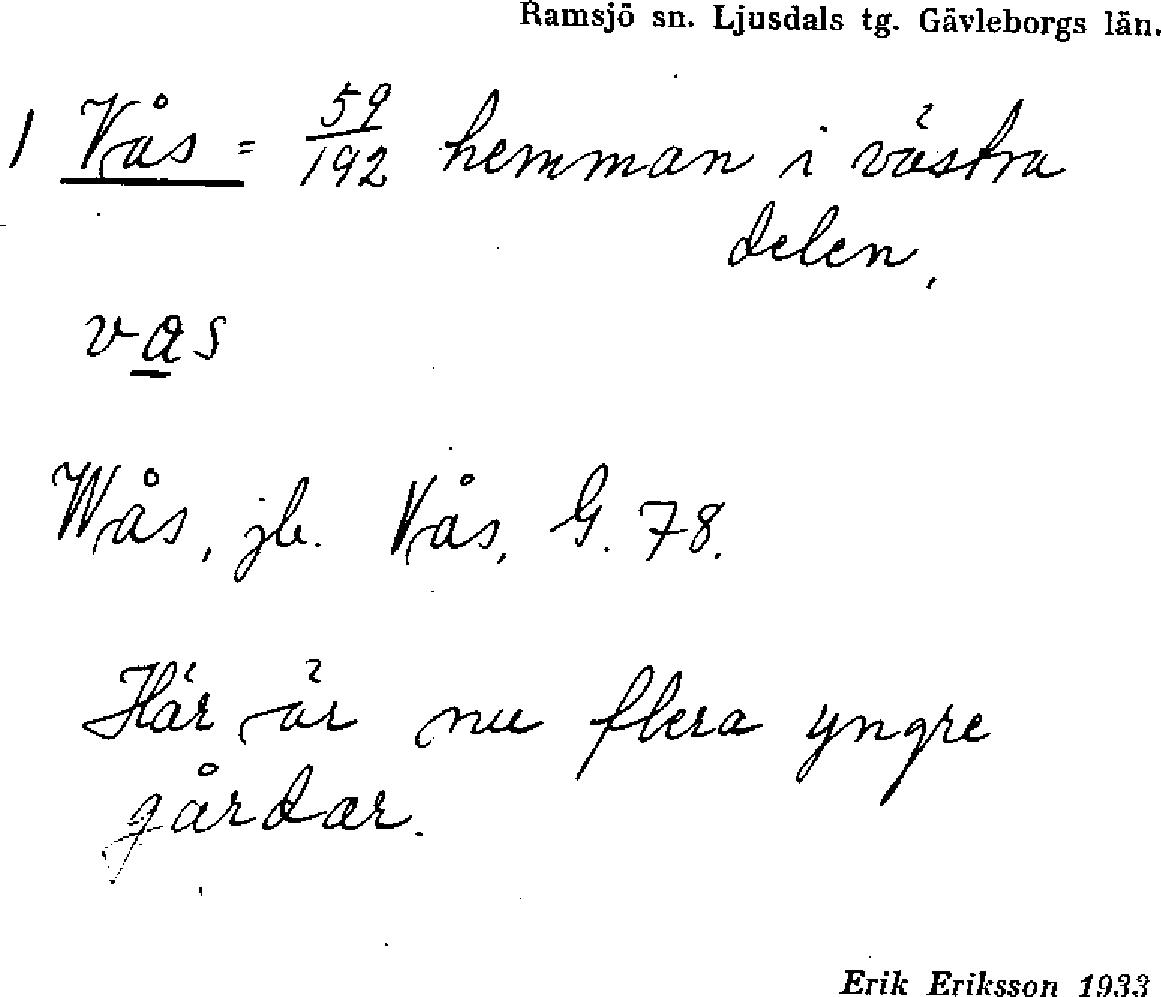 Ramsjö sn. Ljusdals tg. Gävleborgs län.
1 Vås = 59/192 hemman i västra
delen.
vas
Wås, jb. Vås, G. 78.
Här är nu flera yngre
gårdar.
Erik Eriksson 1933